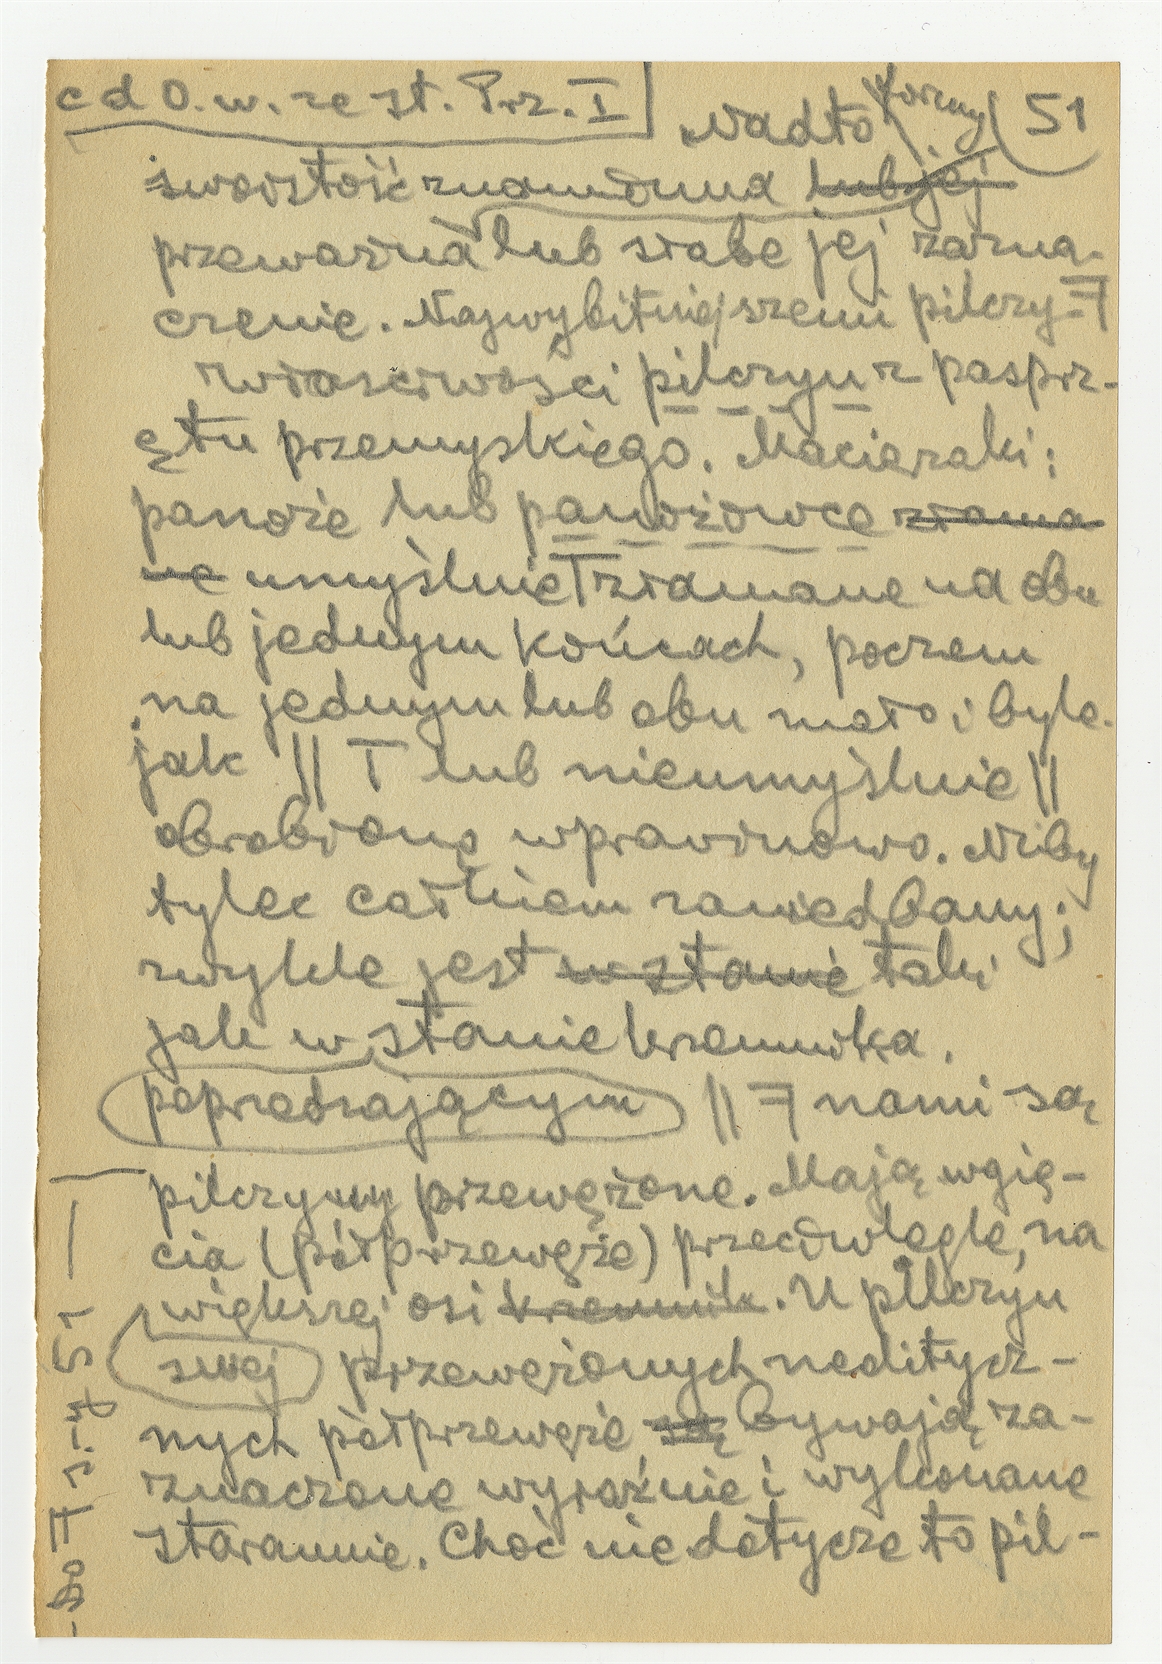 cd O. w. ze st. Prz. I
51
Nadto formy
swoistość znamienna lub jej
przeważna lub słabe jej zazna-
czenie. Najwybitniejszemi pilczy-
właściwości pilczyn z pasprz-
ętu przemyskiego. Macierzaki:
panoże lub panożowce złama
ne umyślnie złamane na obu
lub jednym końcach, poczem
na jednym lub obu mało i byle
jak || T lub nieumyślnie ||
obrobione wprawinowo. Niby
tylec całkiem zaniedbany;
zwykle jest w stanie taki
jak w stanie krzemnika.
poprzedzającym || nami są
pilczyny przewężone. Mają wgię-
cia (półprzewęże) przeciwległe, na
większej osi krzemnika. U pilczyn
swej przewężonych neolitycz-
nych półprzewęże są bywają za-
znaczone wyraźnie i wykonane
starannie. Choć nie dotycze to pil-